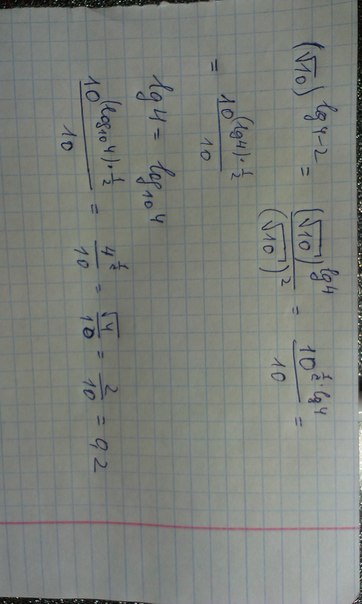 (√10)^(lg4-2) = (√10)^(lg4) / (√10)^2 = 10^(1/2·lg4) / 10 =
= 10^((lg4)·1/2) / 10
lg4 = log₁₀4
10^((log₁₀4)·1/2) / 10 = 4^(1/2) / 10 = √4 / 10 = 2 / 10 = 0,2